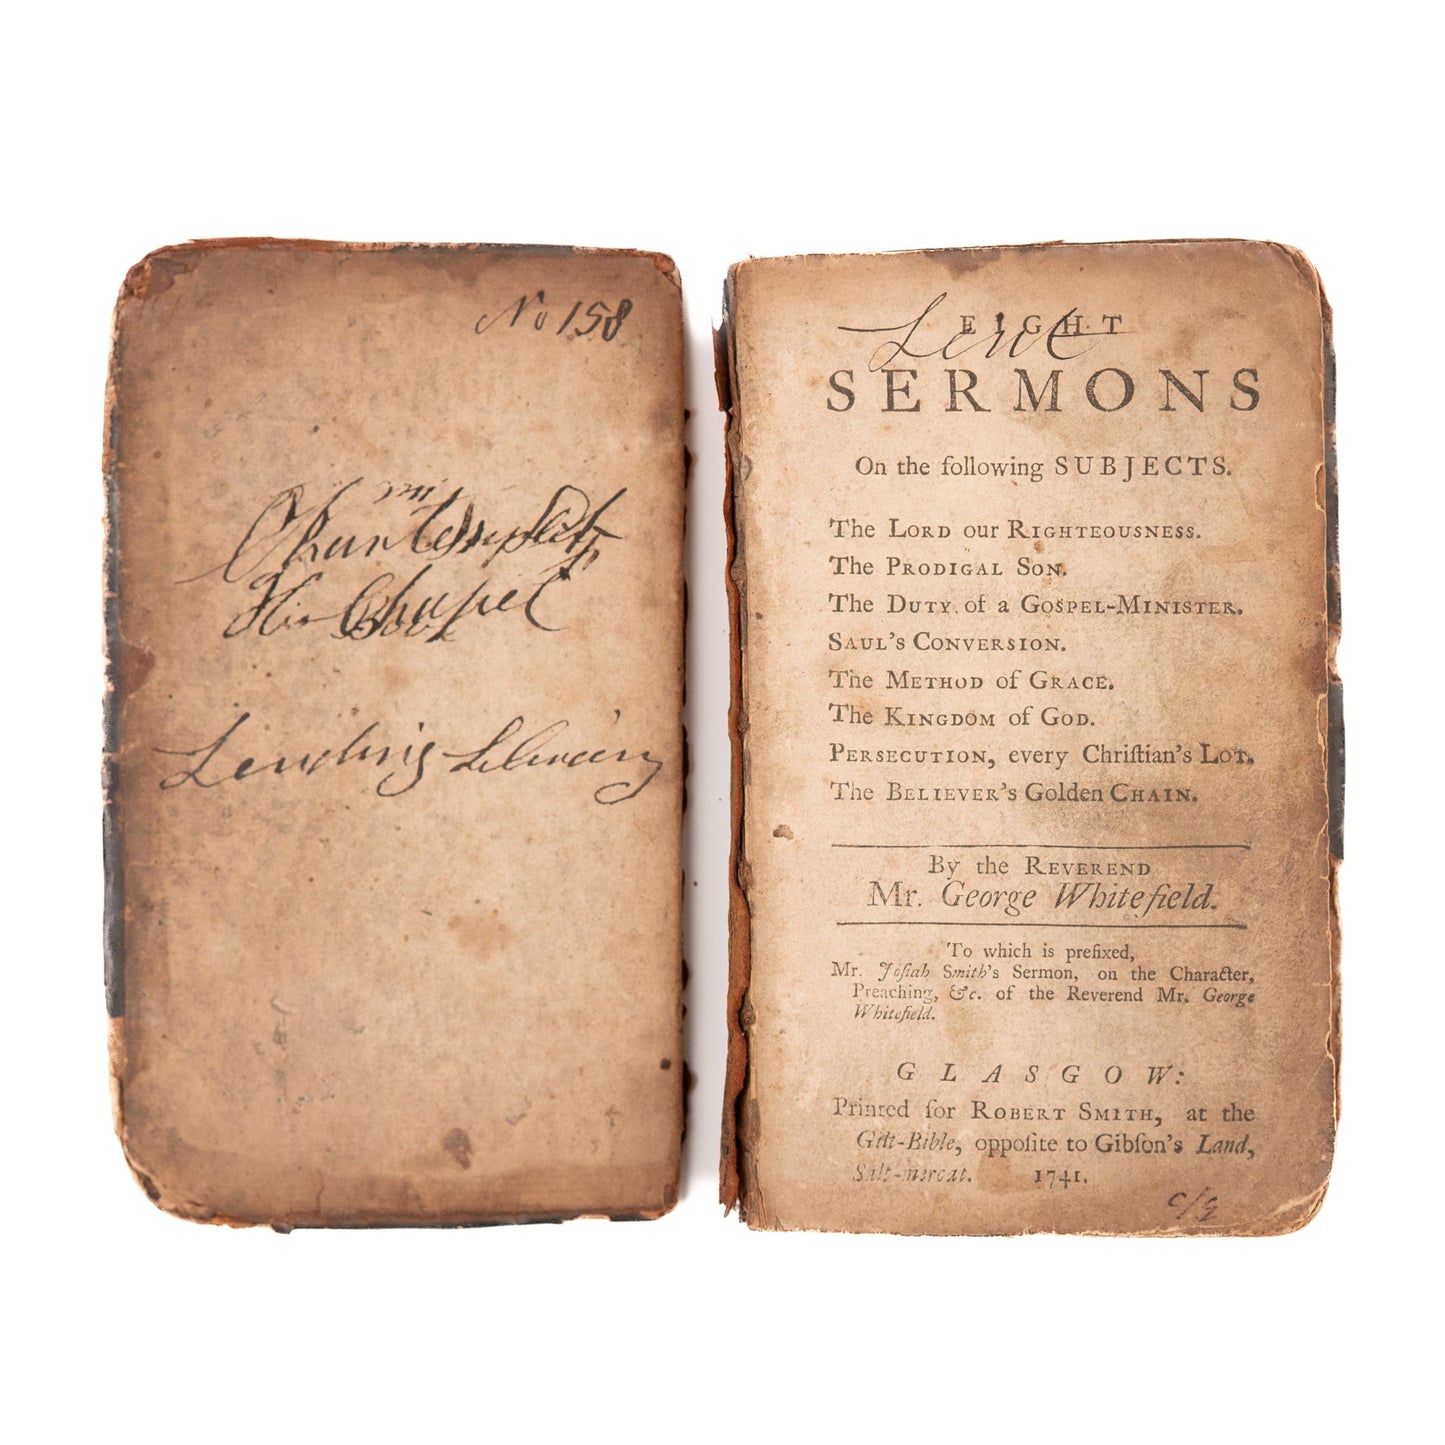 No 158
Chapel
Lending Library
EIGHT
SERMONS
On the following SUBJECTS.
The LORD our RIGHTEOUSNESS.
The PRODIGAL SON.
The DUTY of a GOSPEL-MINISTER.
SAUL'S CONVERSION.
The METHOD of GRACE.
The KINGDOM of GOD.
PERSECUTION, every Chriſtian's LOT.
The BELIEVER's Golden CHAIN.
By the REVEREND
Mr. George Whitefield.
To which is prefixed,
Mr. Joſiah Smith's Sermon, on the Character,
Preaching, &c. of the Reverend Mr. George
Whitefield.
GLASGOW:
Printed for ROBERT SMITH, at the
Gilt-Bible, oppoſite to Gibſon's Land,
Salt-mercat. 1741.